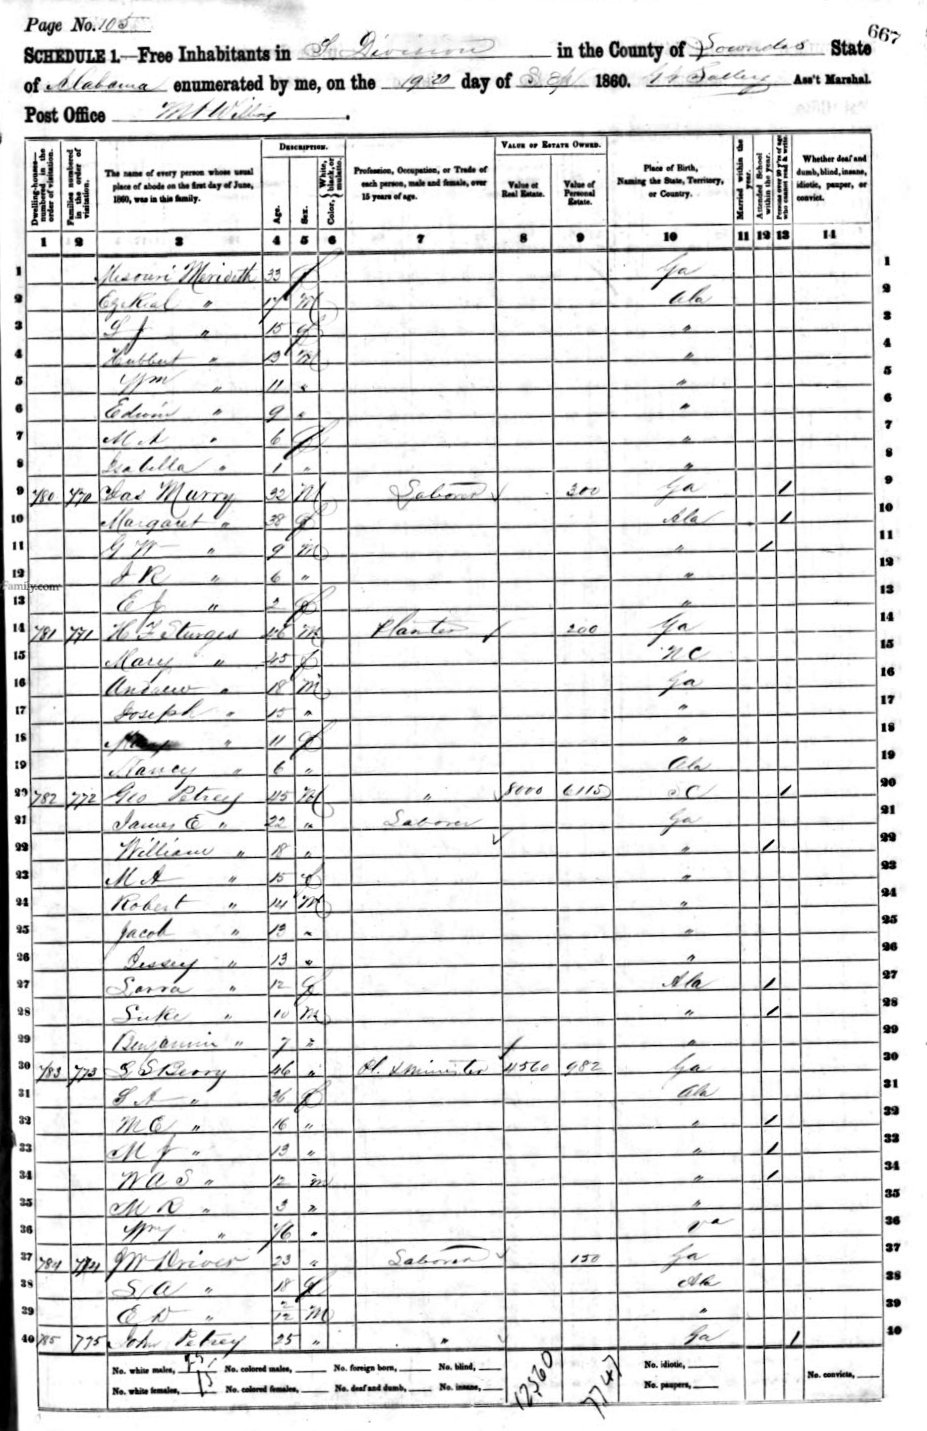 Page No. 105
667
SCHEDULE 1.—Free Inhabitants in S. Division in the County of Lowndes State
of Alabama enumerated by me, on the 19 20 day of Sept 1860. Ass't Marshal.
Post Office Mt Willing.
DESCRIPTION. VALUE OF ESTATE OWNED.
Dwelling-houses—numbered in the order of visitation. Families numbered in the order of visitation. The name of every person whose usual place of abode on the first day of June, 1860, was in this family. Age. Sex. Color, White, black, or mulatto. Profession, Occupation, or Trade of each person, male and female, over 15 years of age. Value of Real Estate. Value of Personal Estate. Place of Birth, Naming the State, Territory, or Country. Married within the year. Attended School within the year. Persons over 20 y'rs of age who cannot read & write. Whether deaf and dumb, blind, insane, idiotic, pauper, or convict.
1 2 3 4 5 6 7 8 9 10 11 12 13 14
1 Misouri Merideth 33 f Ga 1
2 Ezekial " 17 M Ala 2
3 S J " 15 f " 3
4 Hubbert " 13 M " 4
5 Wm " 11 " " 5
6 Edwin " 9 " " 6
7 M A " 6 f " 7
8 Isabella " 1 " " 8
9 780 770 Jas Murry 32 M Laborer 200 Ga 1 9
10 Margaret " 38 f Ala 1 10
11 G W " 9 M " 1 11
12 J R " 6 " " 12
Family.com
13 E J " 2 f " 13
14 781 771 H F Sturges 46 M Planter 200 Ga 14
15 Mary " 45 f NC 15
16 Andrew " 18 M Ga 16
17 Joseph " 15 " " 17
18 " 11 f " 18
19 Nancy " 6 " Ala 19
20 782 772 Geo Petrey 45 M " 8000 6115 SC 1 20
21 James E " 22 " Laborer Ga 21
22 William " 18 " " 1 22
23 M A " 15 f " 23
24 Robert " 14 M " 24
25 Jacob " 13 " " 25
26 " 13 " " 26
27 Sarra " 12 f Ala 1 27
28 Luke " 10 M " 1 28
29 Benjamin " 7 " " 29
30 783 773 S S Berry 46 " & minister 4560 982 Ga 30
31 S A " 36 f Ala 31
32 M E " 16 " " 1 32
33 M J " 13 " " 1 33
34 W A S " 12 m " 1 34
35 M R " 3 " " 35
36 Wm " " 36
37 784 774 J W Driver 23 " Laborer 150 Ga 37
38 S A " 18 f Ala 38
39 E D " 2/12 M " 39
40 785 775 John Petrey 25 " " Ga 1 40
No. white males, 25 No. colored males, No. foreign born, No. blind, No. idiotic,
No. white females, 15 No. colored females, No. deaf and dumb, No. insane, 12560 7747 No. paupers, No. convicts,